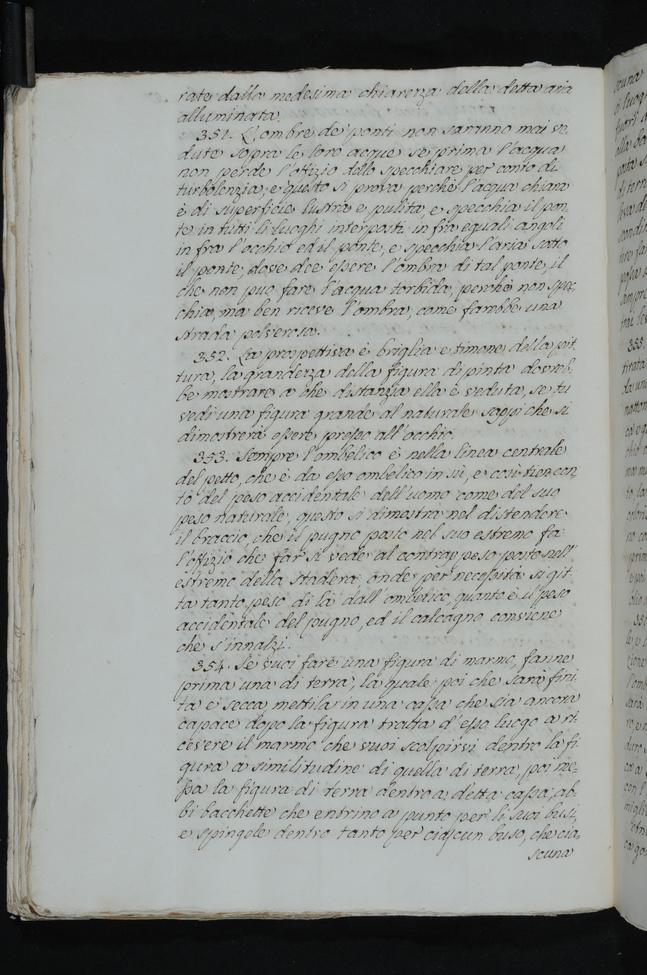 rate dalla medesima chiarezza della detta aria
alluminata.
351. L'ombre de ponti non saranno mai ve-
dute sopra le loro acque se prima l'acqua
non perde l'offizio dello specchiare per conto di
turbolenzia, e questo si prova perchè l'acqua chiara
è di superficie lustra e pulita, e specchia il pon-
te in tutti li luoghi interposti in fra eguali angoli
in fra l'occhio ed il ponte, e specchia l'aria sotto
il ponte, dove dee essere l'ombra di tal ponte, il
che non puo fare l'acqua torbida, perchè non spec-
chia, ma ben riceve l'ombra, come farebbe una
strada polverosa.
352. La prospettiva è briglia e timone della pit
tura, la grandezza della figura dipinta dovreb-
be mostrare a che distanzia ella è veduta, se tu
vedi una figura grande al naturale sappi che si
dimostrerà essere presso all'occhio.
353. Sempre l'ombelico è nella linea centrale
del petto, che è da esso ombelico in sù, e così tien con-
to del peso accidentale dell'uomo come del suo
peso naturale, questo si dimostra nel distendere
il braccio, che il pugno posto nel suo estremo fa
l'offizio che far si vede al contrappeso posto nell'
estremo della stadera, onde per necessità si git-
ta tanto peso di là dall'ombelico quanto è il peso
accidentale del pugno, ed il calcagno conviene
che s'innalzi.
354. Se vuoi fare una figura di marmo, fanne
prima una di terra, la quale poi che sarà fini-
ta e secca mettila in una cassa che sia ancora
capace dopo la figura tratta d'esso luogo a ri
cevere il marmo che vuoi scolpirvi dentro la fi
gura a similitudine di quella di terra, poi mes-
sa la figura di terra dentro a detta cassa, ab-
bi bacchette che entrino a punto per li suoi busi,
e spingole dentro tanto per ciascun buso, che cia-
scuna